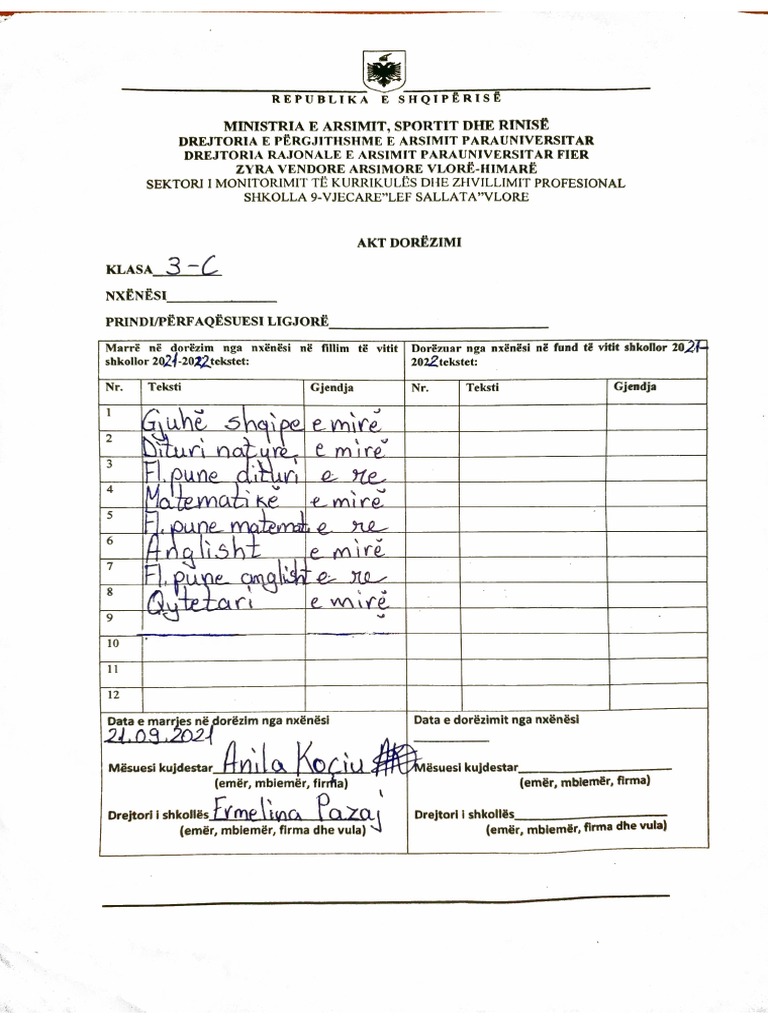 REPUBLIKA E SHQIPËRISË
MINISTRIA E ARSIMIT, SPORTIT DHE RINISË
DREJTORIA E PËRGJITHSHME E ARSIMIT PARAUNIVERSITAR
DREJTORIA RAJONALE E ARSIMIT PARAUNIVERSITAR FIER
ZYRA VENDORE ARSIMORE VLORË-HIMARË
SEKTORI I MONITORIMIT TË KURRIKULËS DHE ZHVILLIMIT PROFESIONAL
SHKOLLA 9-VJECARE"LEF SALLATA"VLORE
AKT DORËZIMI
KLASA 3-C
NXËNËSI
PRINDI/PËRFAQËSUESI LIGJORË
Marrë në dorëzim nga nxënësi në fillim të vitit
shkollor 2021-2022tekstet:
Dorëzuar nga nxënësi në fund të vitit shkollor 2021-
2022tekstet:
Nr. Teksti Gjendja Nr. Teksti Gjendja
1 Gjuhë shqipe e mirë
2 Dituri natyre, e mirë
3 Fl. pune dituri e re
4 Matematikë e mirë
5 Fl. pune matemat. e re
6 Anglisht e mirë
7 Fl. pune anglisht e re
8 Qytetari e mirë
9
10
11
12
Data e marrjes në dorëzim nga nxënësi
21.09.2021
Mësuesi kujdestar Anila Koçiu
(emër, mbiemër, firma)
Drejtori i shkollës Ermelina Pazaj
(emër, mbiemër, firma dhe vula)
Data e dorëzimit nga nxënësi
Mësuesi kujdestar
(emër, mbiemër, firma)
Drejtori i shkollës
(emër, mbiemër, firma dhe vula)